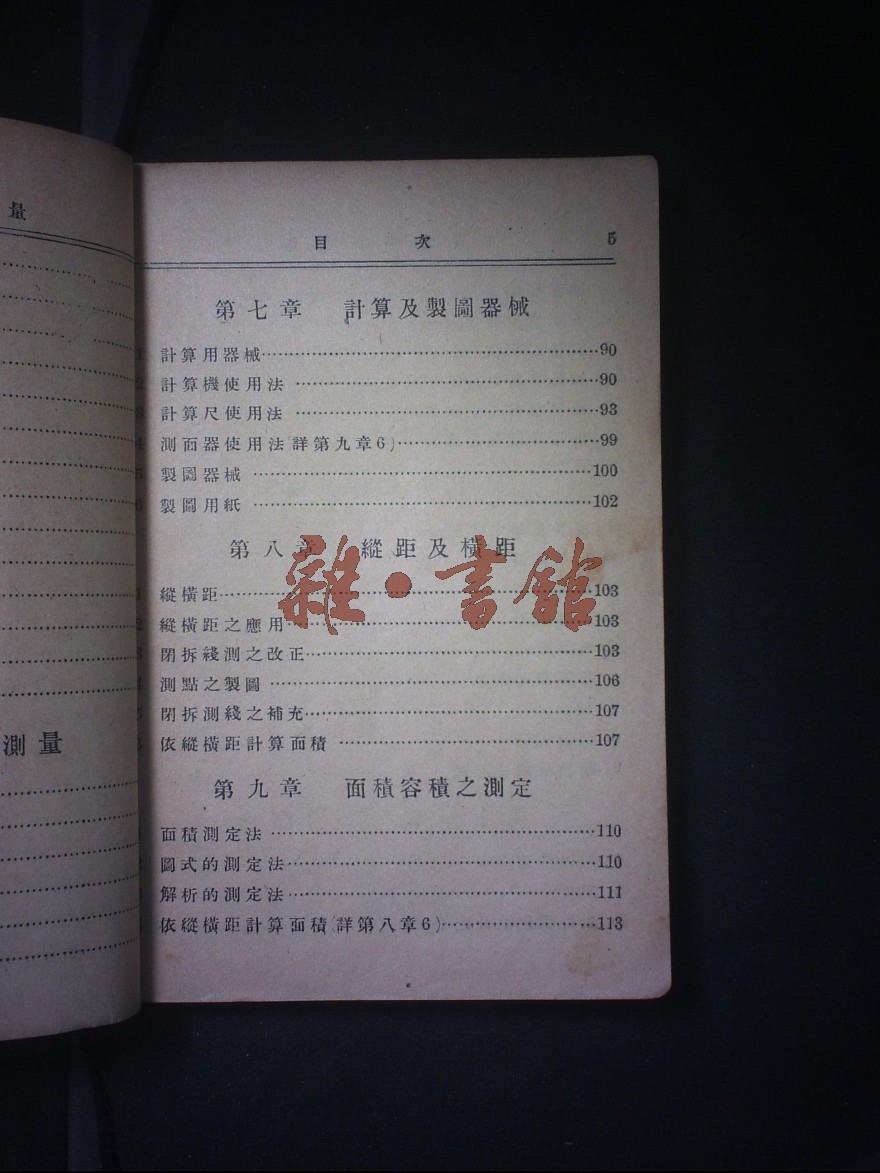 量
測量
目 次 5
第七章 計算及製圖器械
1 計算用器械…………90
2 計算機使用法…………90
3 計算尺使用法…………93
4 測面器使用法(詳第九章6)…………99
5 製圖器械…………100
6 製圖用紙…………102
第八章 縱距及橫距
1 縱橫距…………103
2 縱橫距之應用…………103
3 閉拆綫測之改正…………103
4 測點之製圖…………106
5 閉拆測綫之補充…………107
依縱橫距計算面積…………107
第九章 面積容積之測定
面積測定法…………110
圖式的測定法…………110
解析的測定法…………111
依縱橫距計算面積(詳第八章6)…………113
雜·書館